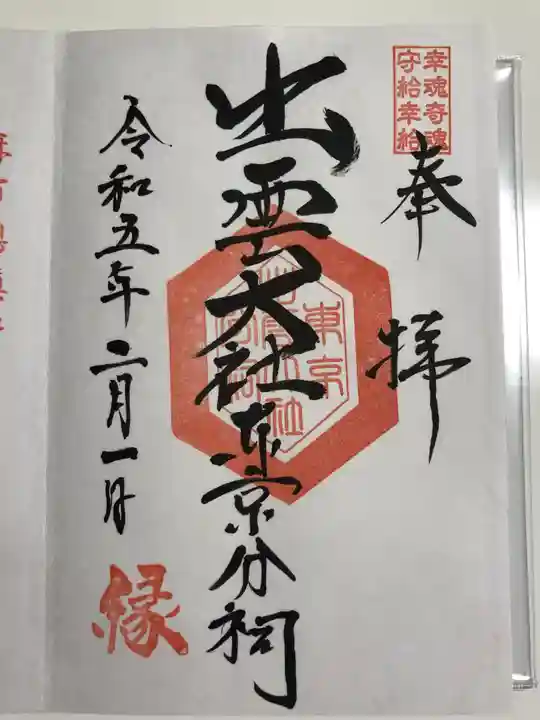 幸魂奇魂
守給幸給
奉拝
出雲大社東京分祠
東京
令和五年二月一日
縁